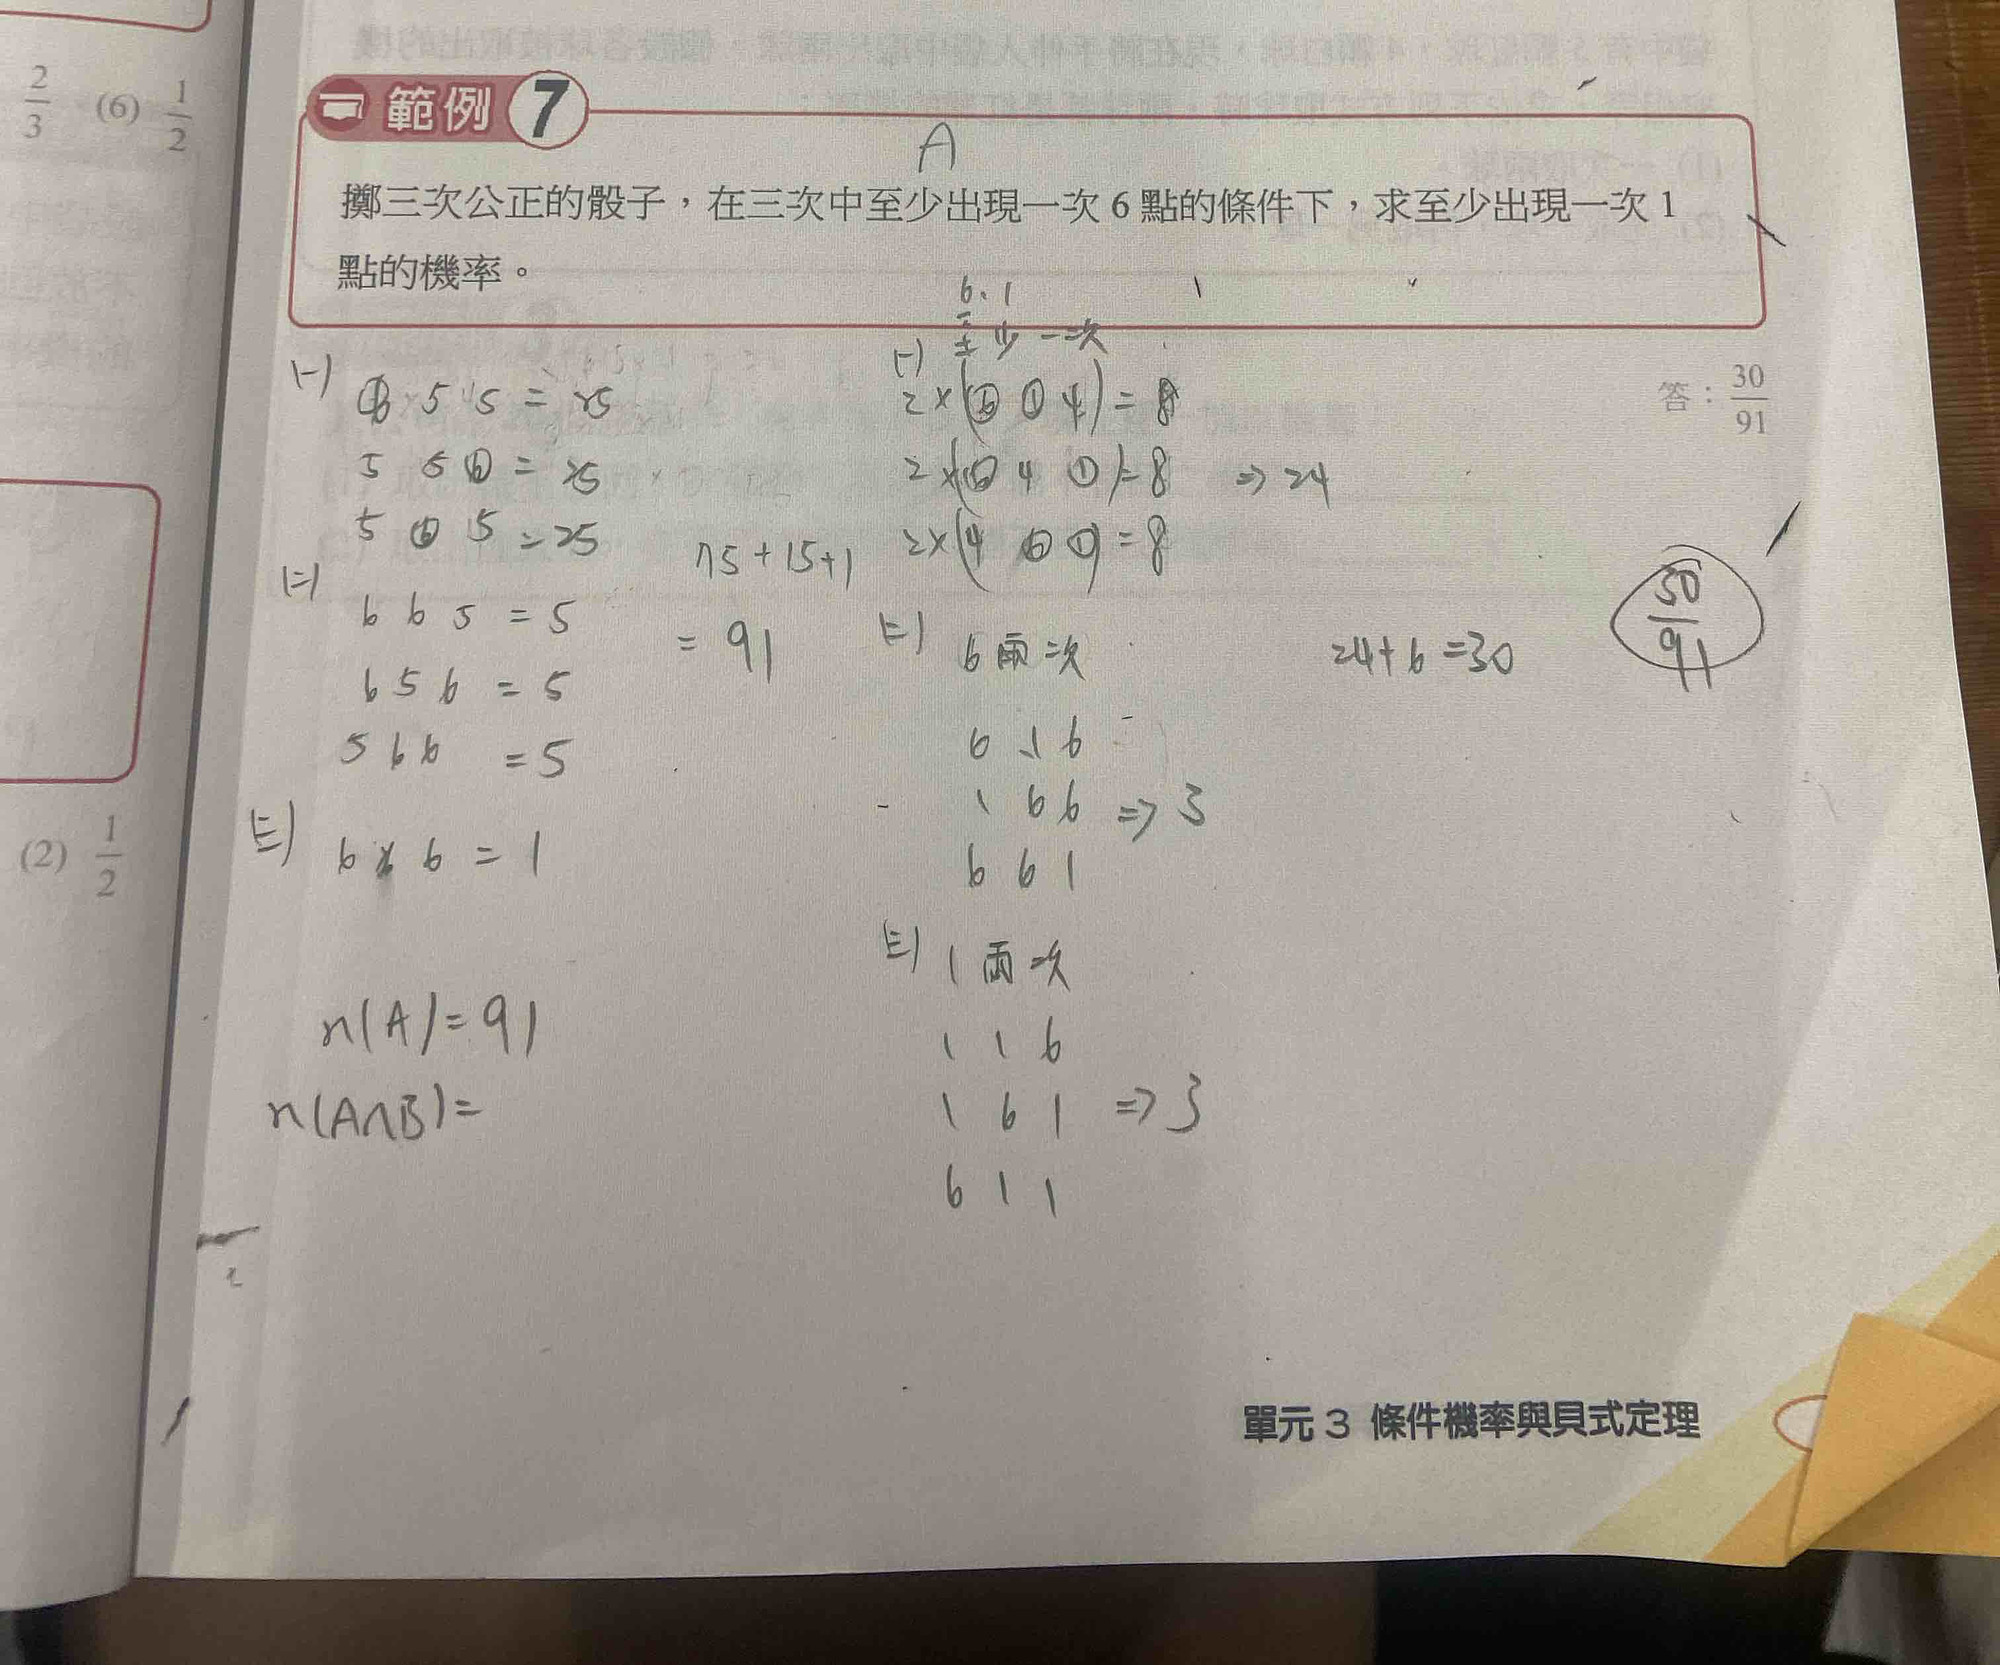 2/3 (6) 1/2
(2) 1/2
範例 7
A
擲三次公正的骰子，在三次中至少出現一次 6 點的條件下，求至少出現一次 1
點的機率。
答：30/91
(一)
⑥ 5 5 = 25
5 5 ⑥ = 25
5 ⑥ 5 = 25
(二)
6 6 5 = 5
6 5 6 = 5
5 6 6 = 5
(三)
6 6 6 = 1
75+15+1
= 91
n(A)=91
n(A∩B)=
6、1
至少一次
(一)
2×(⑥ ① 4)= 8
2×(⑥ 4 ①)= 8 ⇒ 24
2×(4 ⑥ ①)= 8
(二) 6兩次
6 1 6
1 6 6 ⇒ 3
6 6 1
(三) 1兩次
1 1 6
1 6 1 ⇒ 3
6 1 1
24+6=30
30/91
單元 3 條件機率與貝式定理